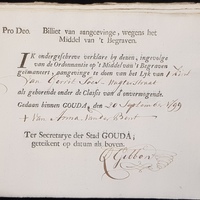 Pro Deo. Biljet van aangeevinge, wegens het
Middel van 't Begraven.
IK ondergeschreve verklare by deezen, ingevolge
van de Ordonnantie op 't Middel van 't Begraven
geëmaneert, aangevinge te doen van het Lyk van 't kind
Van Gerrit
als gehorende onder de Classis van d'onvermogende.
Gedaan binnen GOUDA, den 20 September 1799
+ Van Anna van der
Ter Secretarye der Stad GOUDA;
geteikent op datum als boven.